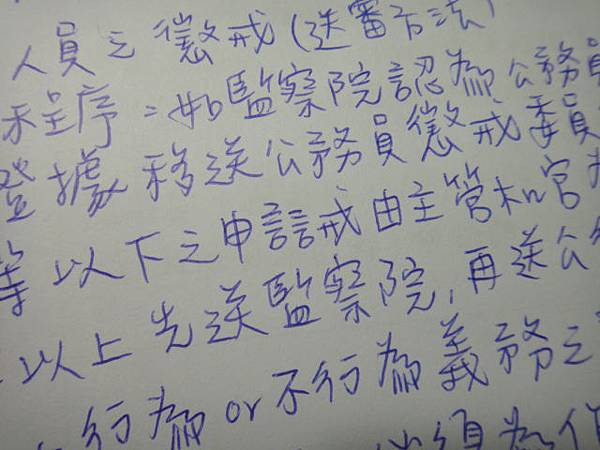 人員之懲戒(送審方法)
程序:如監察院認為公務員
證據移送公務員懲戒委員
等以下之申誡戒由主管和官
以上先送監察院,再送公
行為or不行為義務之
須為